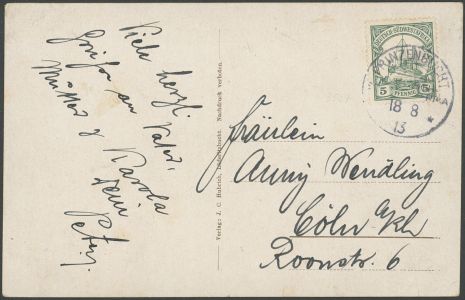 Viele herzl.
Grüße an Vater,
Mutter &
Karola
Dein
Peter.
Verlag: J. C. Hubrich, Lüderitzbucht. Nachdruck verboten.
DEUTSCH-SÜDWESTAFRIKA
5 PFENNIG 5
PRINZENBUCHT
18 8
13 *
Fräulein
Anny Wendling
Cöln a/Rh
Roonstr. 6